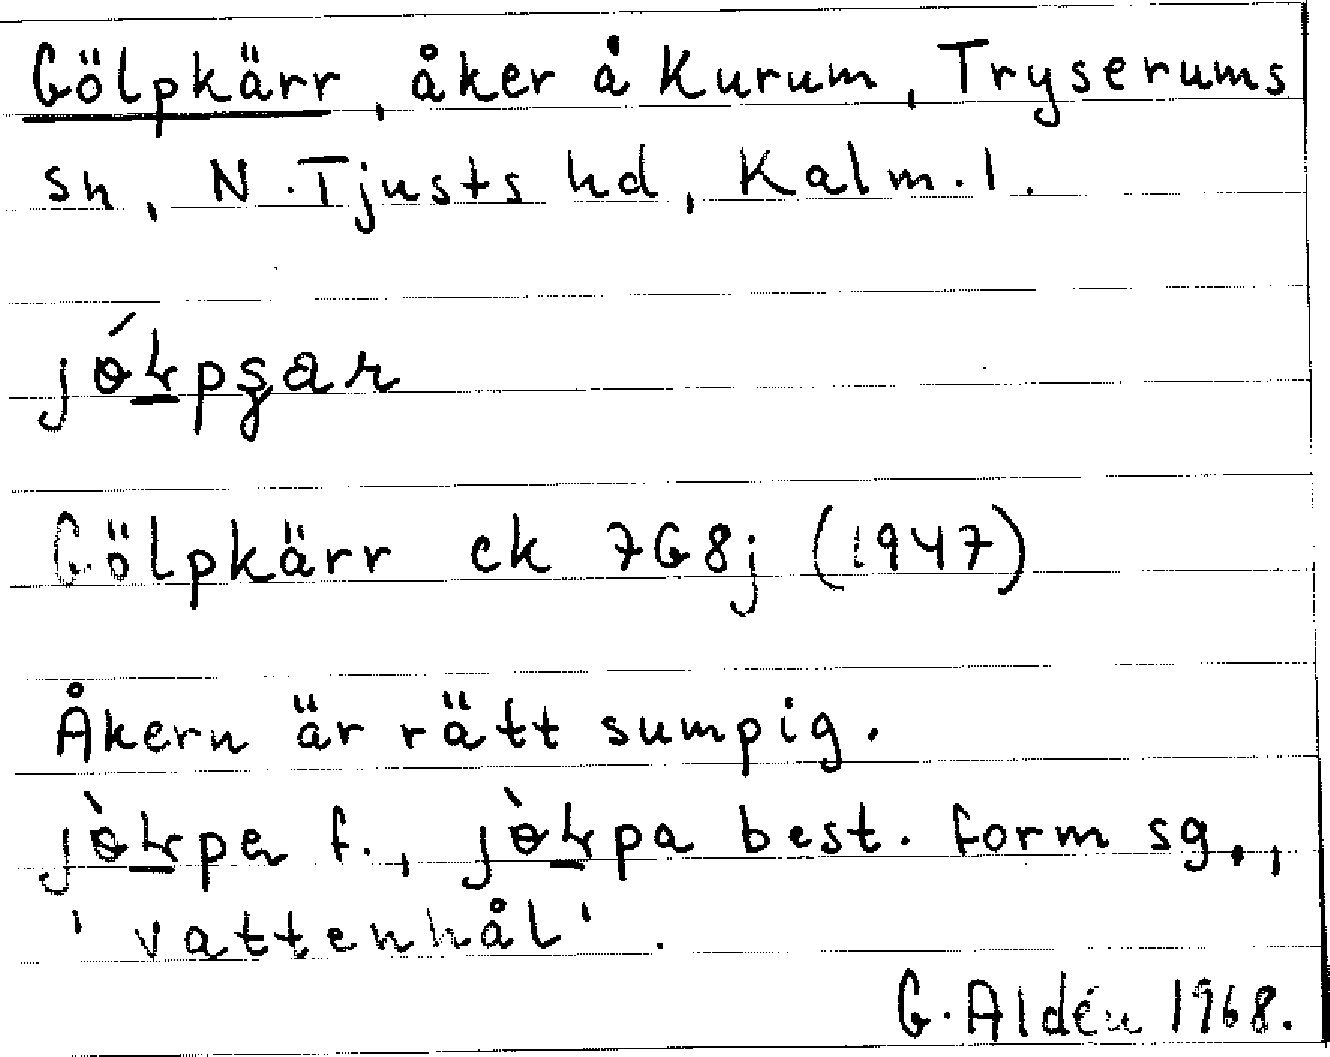 Gölpkärr, åker å Kurum, Tryserums
sn, N. Tjusts hd, Kalm. l.
Gölpkärr ek 7G8j (1947)
Åkern är rätt sumpig.
f., best. form sg.,
'vattenhål'.
G. Aldén 1968.